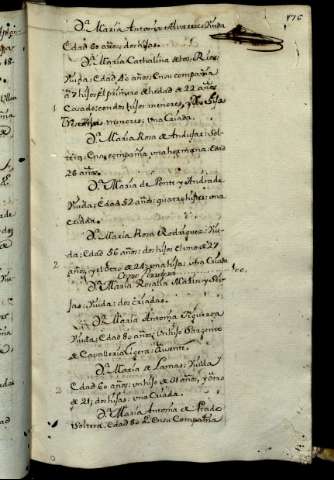 176
Dª María Antonia Alvarez: Viuda
Edad 60 años: dos hijos.
Dª María Cathalina de los Rios:
Viuda: Edad 40 años: En su compañia
hijos, el primero de hedad de 22 años
1 Casado; con dos hijos menores, y
menores; una Criada.
Dª María Rosa de Andujar: Sol-
tera; En su compañia, una hermana: Edad
26 años.
Dª María de Ponte y Andrade
Viuda: Edad 52 años: quatro hijos: una
Criada.
Dª María Rosa Rodriguez: Viu-
da: Edad 56 años: dos hijos: El uno de 27
2 años, y el otro de 24: una hija: una Criada
Dª María Rosalia Martin y
Viuda: dos Criadas.
Dª María Antonia Figueroa
Viuda: Edad 80 años; un hijo Sargento
de Cavalleria Ligera: Ausente.
Dª María de Lamas: Viuda
2 Edad 60 años: un hijo de 31 años, y otro
de 21: dos hijas: una Criada.
Dª María Antonia de Prado
Soltera: Edad 30 En su Compañia